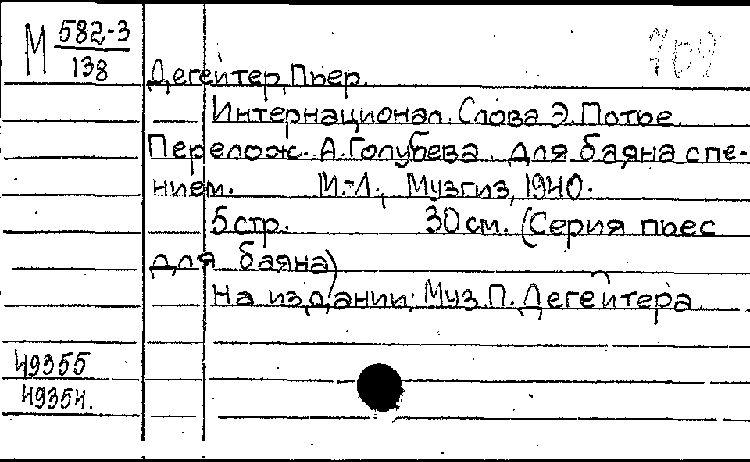 М 582-3
138
709
Дегейтер, Пьер.
Интернационал. Слова Э. Потье.
Перелож. А. Голубева для баяна с пе-
нием. М.-Л., Музгиз, 1940.
5 стр. 30 см. (Серия пьес
для баяна)
На издании: Муз. П. Дегейтера
49355
49354.